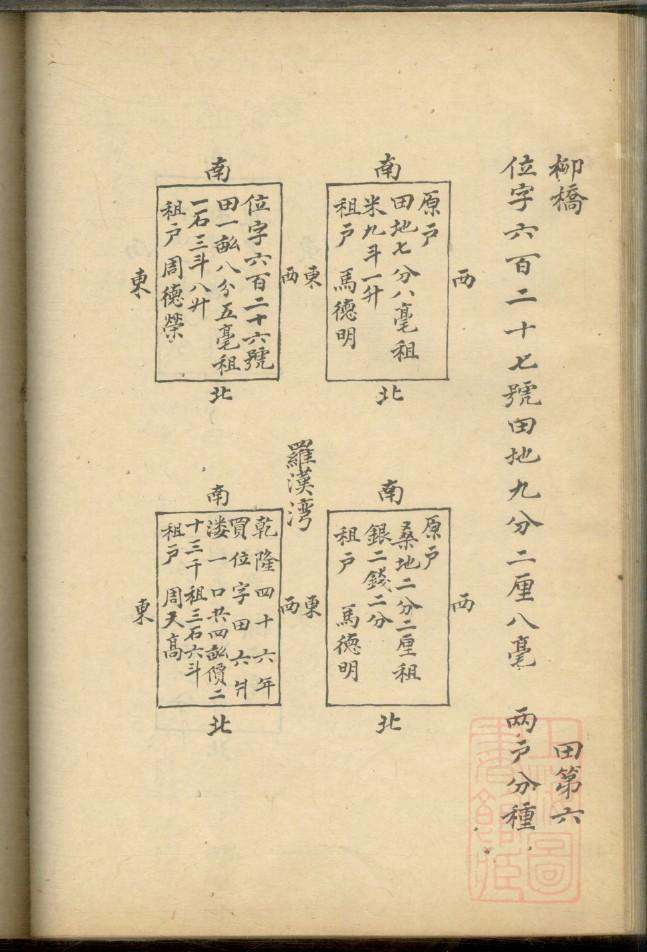 柳橋
田第六
位字六百二十七號田地九分二厘八毫
兩戶分種
南
西
東
北
原戶
田地七分八毫租
米九斗一升
租戶 馬德明
南
西
東
北
原戶
桑地二分二厘租
銀二錢二分
租戶 馬德明
南
西
東
北
位字六百二十六號
田一畝八分五毫租
一石三斗八升
租戶 周德榮
羅漢湾
南
西
東
北
乾隆四十六年
買位字田六爿
漊一口共四畝價二
十三千租三石六斗
租戶 周天高